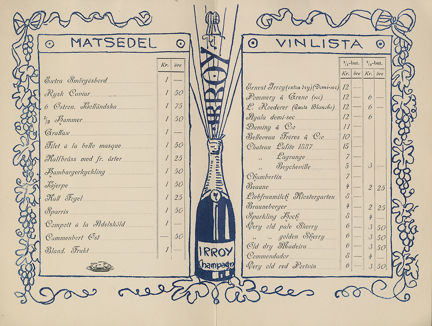 MATSEDEL
Kr. öre
Extra Smörgåsbord 1 —
Rysk Caviar 1 50
6 Ostron, Holländska 1 75
1/2 Hummer 1 50
Graflax 1 —
Filet à la belle masque 1 50
Kalfbräss med fr. ärter 1 25
Hamburgerkyckling 1 50
Hjerpe 1 50
Kall Fogel 1 25
Sparris 1 50
Compott à la Adelsköld 1 —
Camembert Ost — 50
Bland. Frukt 1 —
IRROY
IRROY
Champagne
VINLISTA
1/1-but. 1/2-but.
Kr. öre Kr. öre
Ernest Irroy (extra dry) (Demi-sec) 12 —
Pommery & Greno (sec) 12 — 6 —
L. Roederer (Carte Blanche) 12 — 6 —
Ayala demi-sec 12 — 6 —
Duminy & C:o 11 —
Bellevaux Frères & C:o 10 —
Chateau Lafite 1887 15 —
„ Lagrange 7 —
„ Beychevelle 3
Chambertin
Beaune 4 — 2 25
Liebfraumilch Klostergarten 8 —
Brauneberger 4 — 2 25
Sparkling Hock 8 — 4
Very old pale Sherry 6 — 3 50
„ „ golden Sherry 6 — 3 50
Old dry Madeira 6 — 3 50
Commendador 8 — 4
Very old red Portvin 6 — 3 50